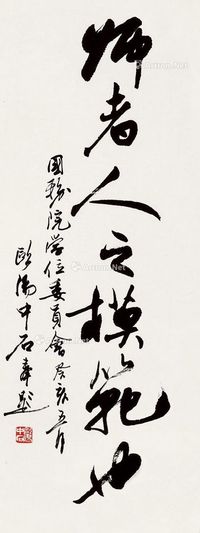 師者人之模范也
國務院学位委員會癸亥五月
歐陽中石奉題